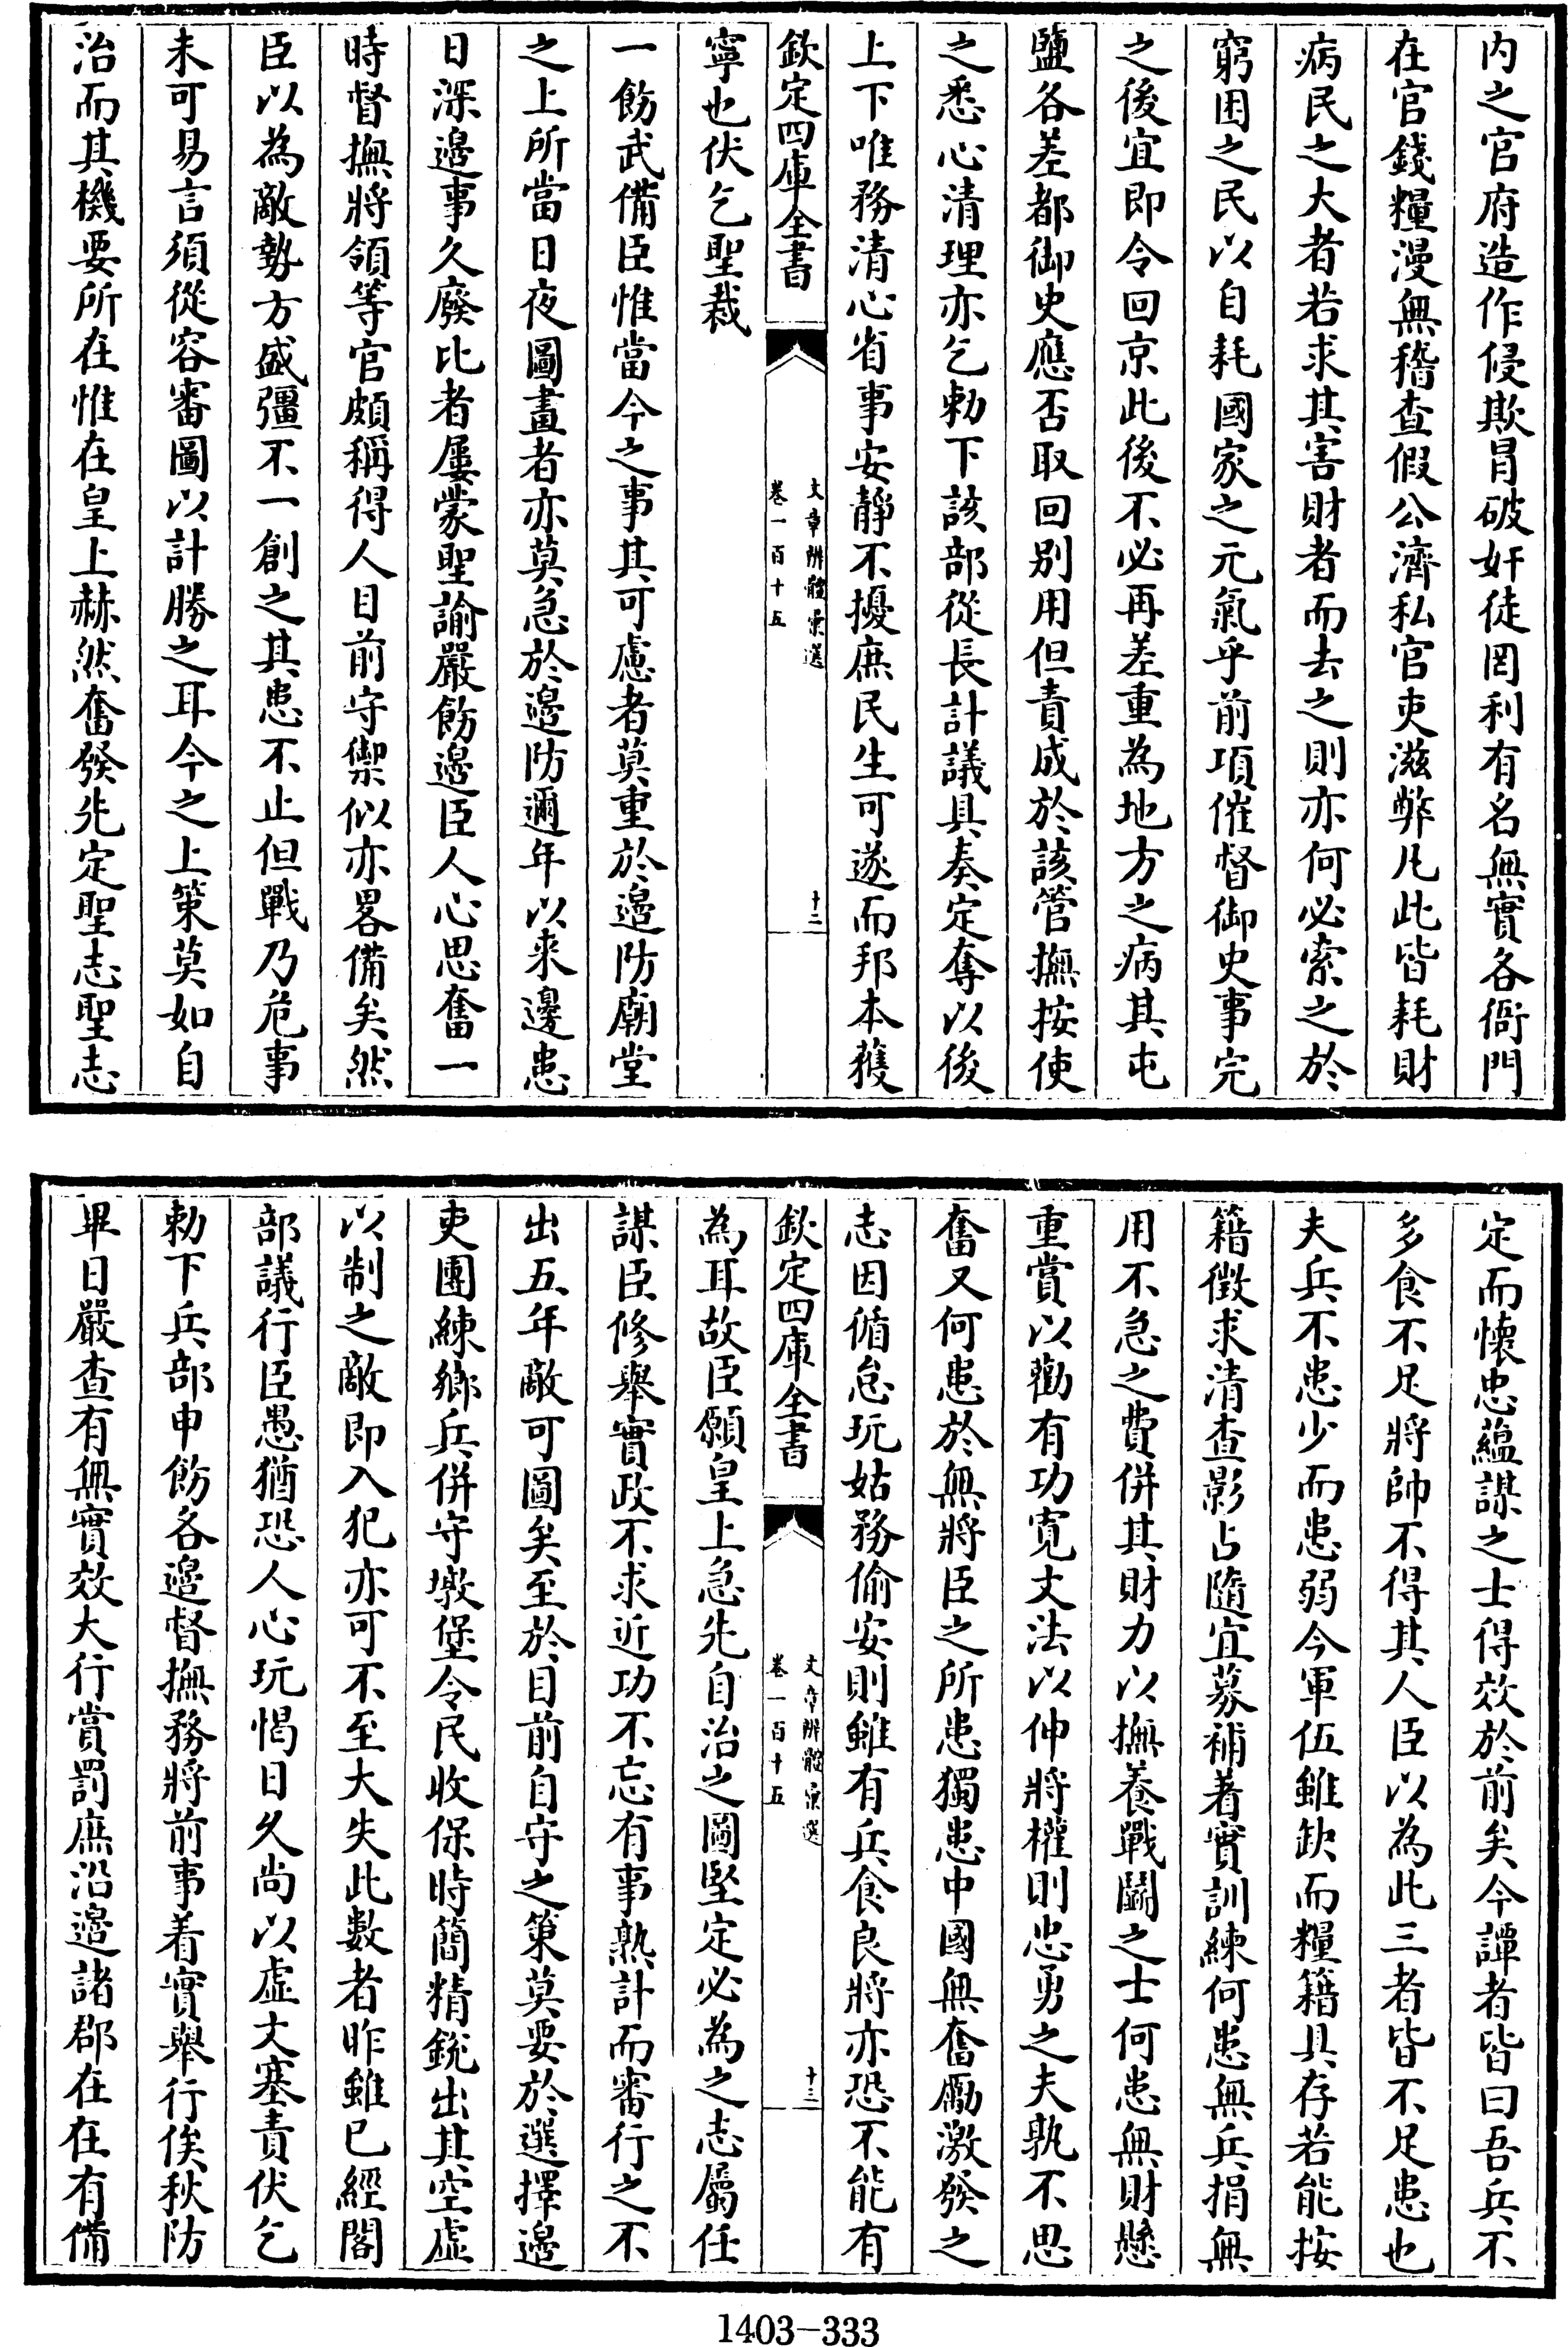 内之官府造作侵欺冒破奸徒罔利有名無實各衙門
在官錢糧漫無稽查假公濟私官吏滋弊凡此皆耗財
病民之大者若求其害財者而去之則亦何必索之於
窮困之民以自耗國家之元氣乎前項催督御史事完
之後宜即令回京此後不必再差重為地方之病其屯
鹽各差都御史應否取回別用但責成於該管撫按使
之悉心清理亦乞勅下該部從長計議具奏定奪以後
上下唯務清心省事安靜不擾庶民生可遂而邦本獲
欽定四庫全書
文章辨體彙選
卷一百十五
十二
寧也伏乞聖裁
一飭武備臣惟當今之事其可慮者莫重於邊防廟堂
之上所當日夜圖畫者亦莫急於邊防邇年以來邊患
日深邊事久廢比者屢蒙聖諭嚴飭邊臣人心思奮一
時督撫將領等官頗稱得人目前守禦似亦畧備矣然
臣以為敵勢方盛彊不一創之其患不止但戰乃危事
未可易言須從容審圖以計勝之耳今之上策莫如自
治而其機要所在惟在皇上赫然奮發先定聖志聖志
定而懷忠蘊謀之士得效於前矣今譚者皆曰吾兵不
多食不足將帥不得其人臣以為此三者皆不足患也
夫兵不患少而患弱今軍伍雖缺而糧籍具存若能按
籍徵求清查影占隨宜募補着實訓練何患無兵捐無
用不急之費併其財力以撫養戰鬬之士何患無財懸
重賞以勸有功寬文法以伸將權則忠勇之夫孰不思
奮又何患於無將臣之所患獨患中國無奮勵激發之
志因循怠玩姑務偷安則雖有兵食良將亦恐不能有
欽定四庫全書
文章辨體彙選
卷一百十五
十三
為耳故臣願皇上急先自治之圖堅定必為之志屬任
謀臣修舉實政不求近功不忘有事熟計而審行之不
出五年敵可圖矣至於目前自守之策莫要於選擇邊
吏團練鄉兵併守墩堡令民收保時簡精銳出其空虛
以制之敵即入犯亦可不至大失此數者昨雖已經閣
部議行臣愚猶恐人心玩愒日久尚以虛文塞責伏乞
勅下兵部申飭各邊督撫務將前事着實舉行俟秋防
畢日嚴查有無實效大行賞罰庶沿邊諸郡在在有備
1403-333